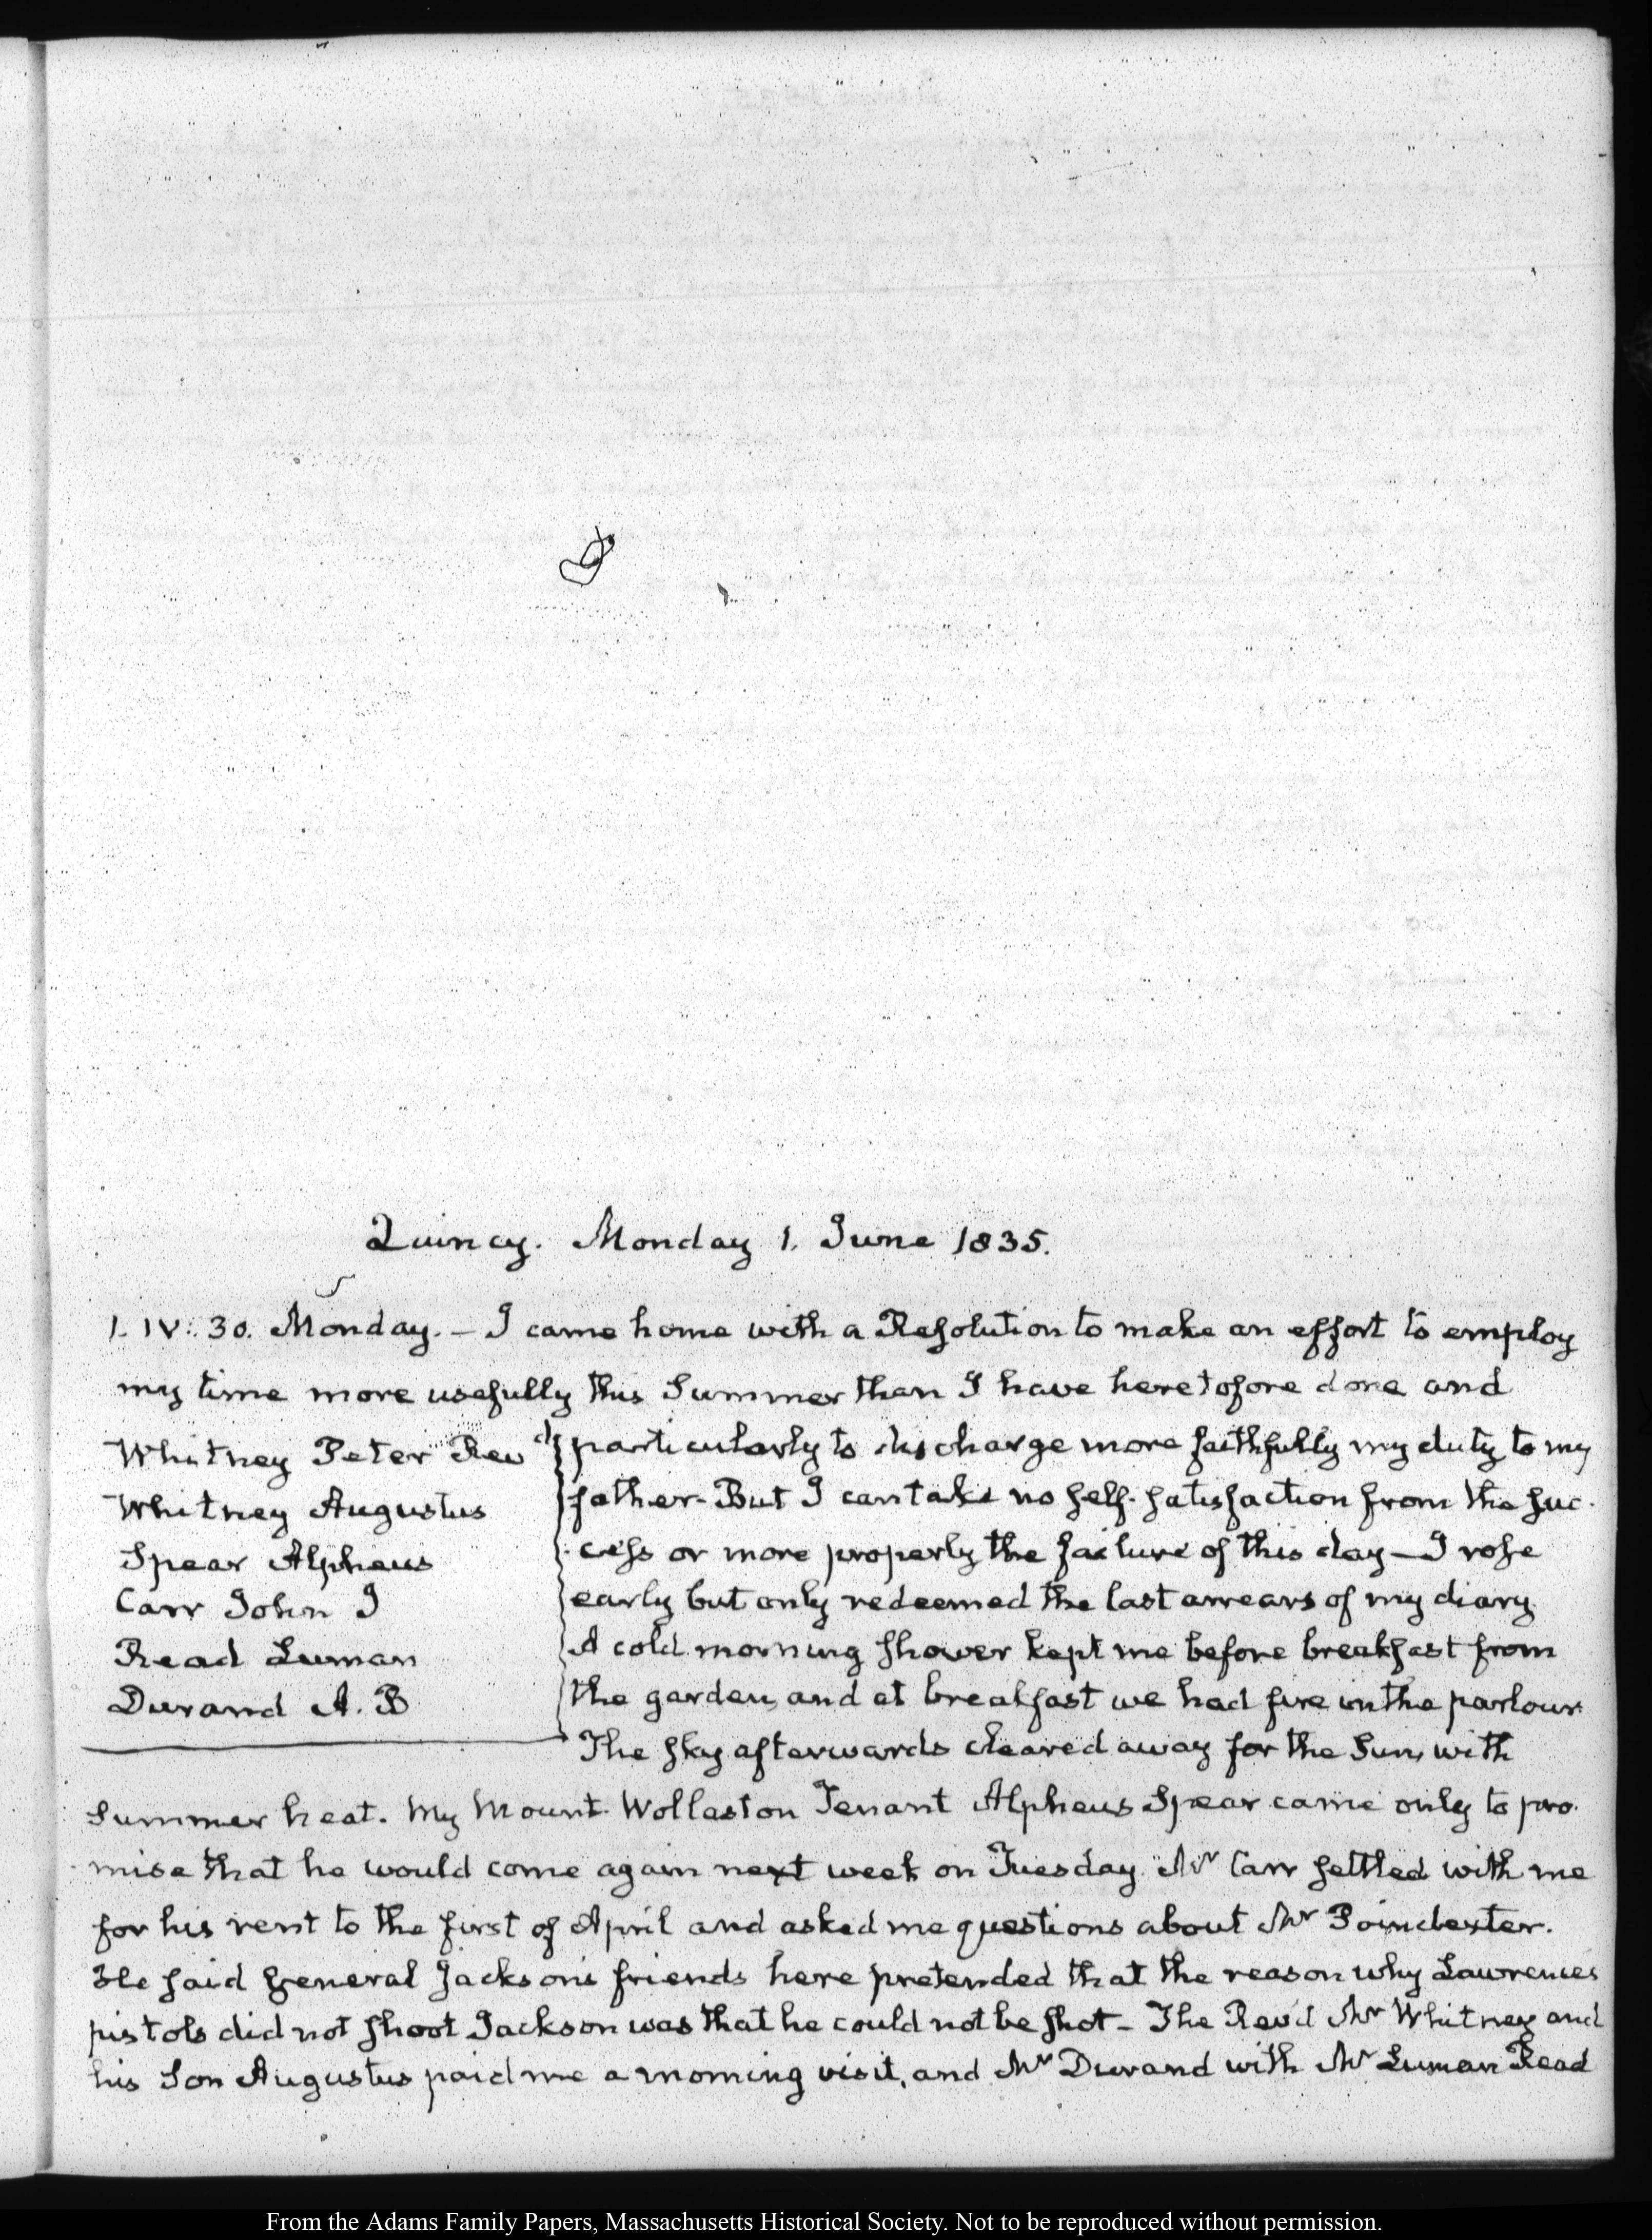 Quincy. Monday 1. June 1835.
1. IV: 30. Monday. — I came home with a Resolution to make an effort to employ
my time more usefully this Summer than I have heretofore done and
Whitney Peter Revd
Whitney Augustus
Spear Alpheus
Carr John J
Read Luman
Durand A. B
particularly to discharge more faithfully my duty to my
father - But I can take no self-satisfaction from the suc-
cess or more properly the failure of this day — I rose
early but only redeemed the last arrears of my diary
A cold morning shower kept me before breakfast from
the garden, and at breakfast we had fire in the parlour
The sky afterwards cleared away for the Sun, with
Summer heat. My Mount Wollaston Tenant Alpheus Spear came only to pro-
mise that he would come again next week on Tuesday. Mr Carr settled with me
for his rent to the first of April and asked me questions about Mr Poindexter.
He said General Jackson's friends here pretended that the reason why Lawrences
pistols did not shoot Jackson was that he could not be shot - The Rev'd Mr Whitney and
his Son Augustus paid me a morning visit, and Mr Durand with Mr Luman Read
From the Adams Family Papers, Massachusetts Historical Society. Not to be reproduced without permission.